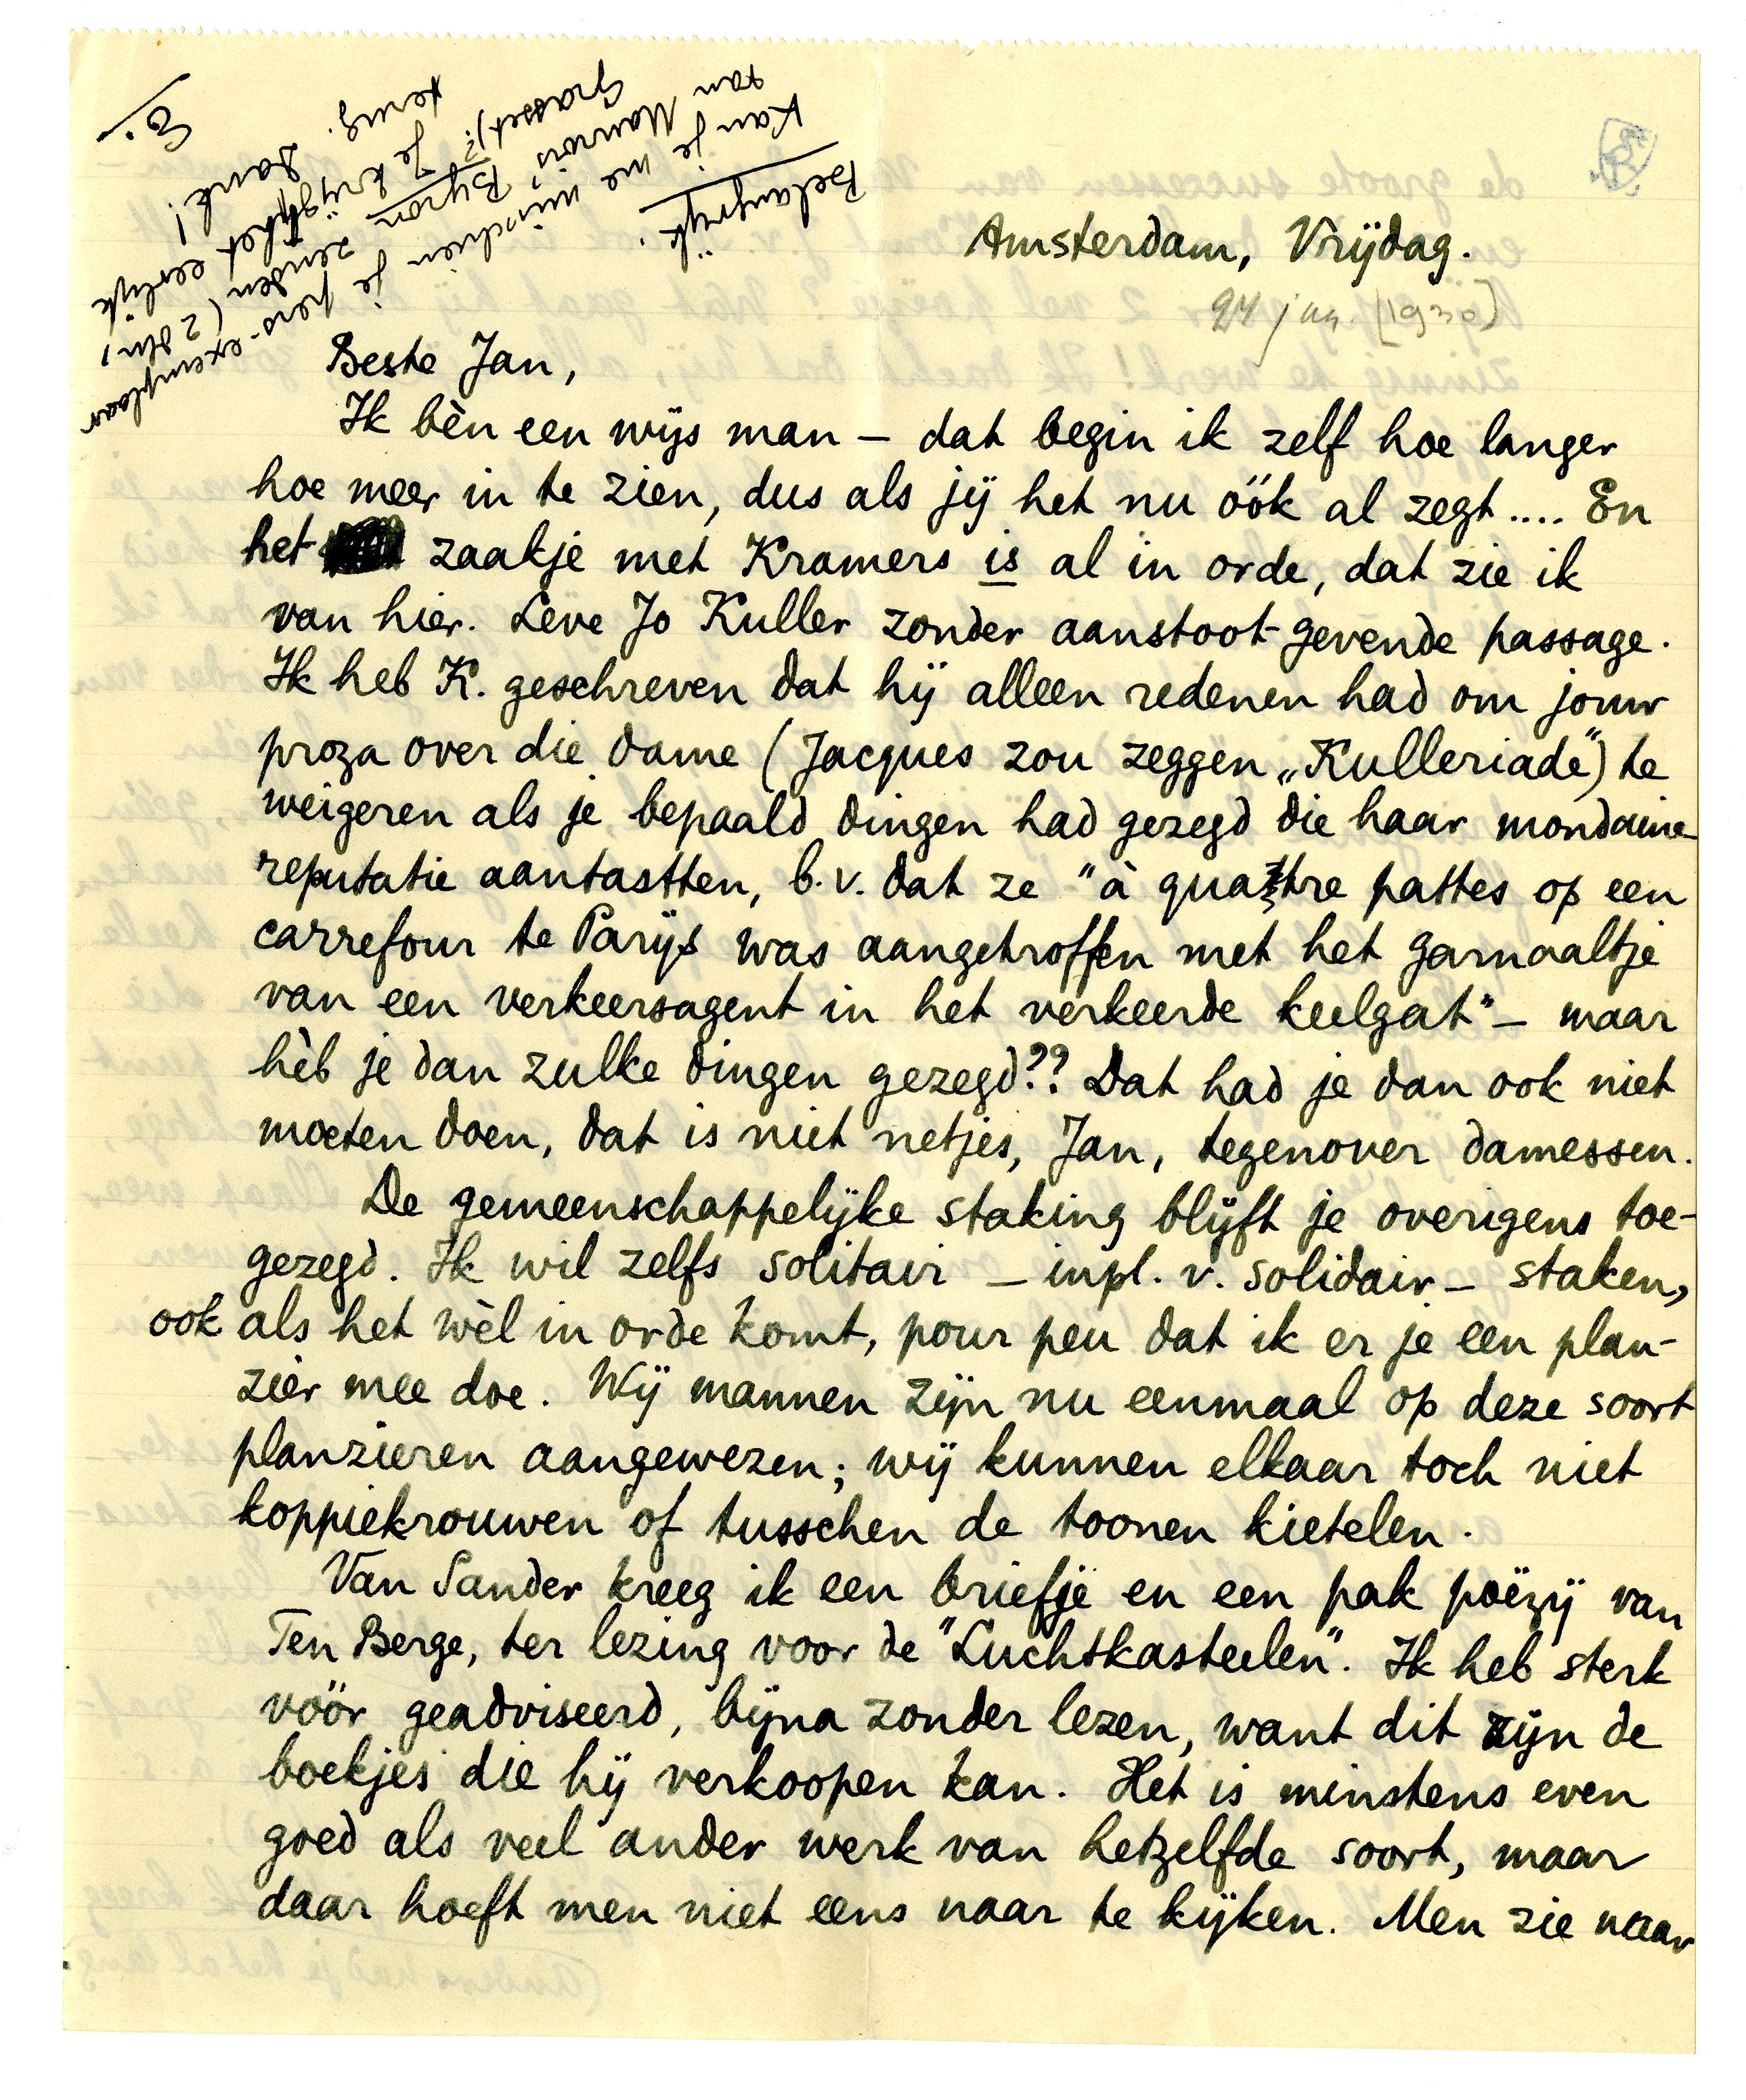 Belangrijk.
Kan je me misschien je pers-exemplaar
van Maurois' Byron zenden (2 dln,
Grasset)? Je krijgt het eerlijk
terug. Dank!
E.
Amsterdam, Vrijdag.
24 jan. [1930]
Beste Jan,
Ik bèn een wijs man – dat begin ik zelf hoe langer
hoe meer in te zien, dus als jij het nu óók al zegt.... En
het zaakje met Kramers is al in orde, dat zie ik
van hier. Leve Jo Kuller zonder aanstoot gevende passage.
Ik heb K. geschreven dat hij alleen redenen had om jouw
proza over die dame (Jacques zou zeggen „Kulleriade") te
weigeren als je bepaald dingen had gezegd die haar mondaine
reputatie aantastten, b.v. dat ze "à quatre pattes op een
carrefour te Parijs was aangetroffen met het garnaaltje
van een verkeersagent in het verkeerde keelgat" – maar
hèb je dan zulke dingen gezegd?? Dat had je dan ook niet
moeten doen, dat is niet netjes, Jan, tegenover damessen.
De gemeenschappelijke staking blijft je overigens toe-
gezegd. Ik wil zelfs solitair – inpl. v. solidair – staken,
ook als het wèl in orde komt, pour peu dat ik er je een plan-
zier mee doe. Wij mannen zijn nu eenmaal op deze soort
planzieren aangewezen; wij kunnen elkaar toch niet
koppiekrouwen of tusschen de toonen kietelen.
Van Sander kreeg ik een briefje en een pak poëzij van
Ten Berge, ter lezing voor de "Luchtkasteelen". Ik heb sterk
vóór geadviseerd, bijna zonder lezen, want dit zijn de
boekjes die hij verkoopen kan. Het is minstens even
goed als veel ander werk van hetzelfde soort, maar
daar hoeft men niet eens naar te kijken. Men zie naar